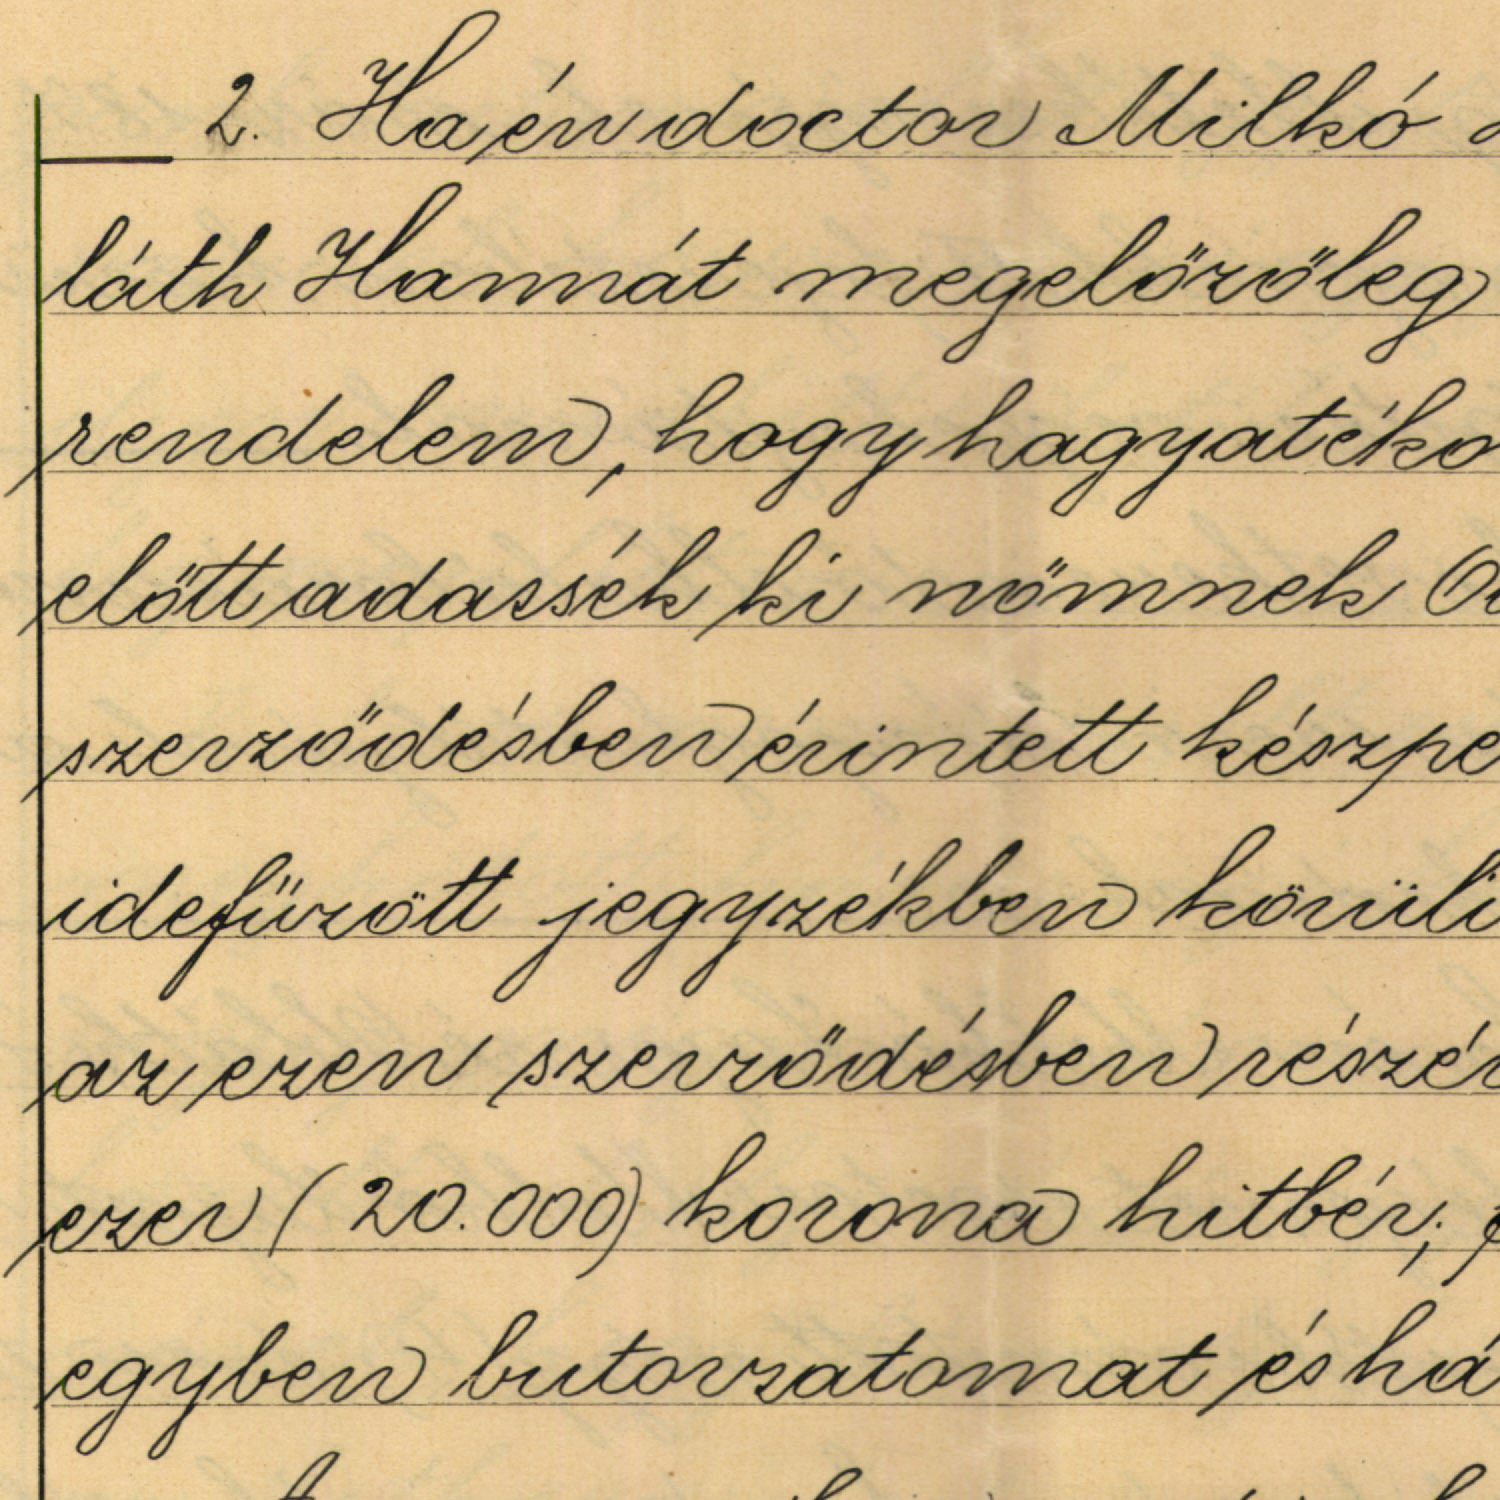 2. Ha én doctor Milkó
láth Hannát megelőzőleg
rendelem, hogy hagyatéko
előtt adassék ki nőmnek
szerződésben érintett készpe
idefűzött jegyzékben körüli
az ezen szerződésben részér
ezer (20.000) korona hitbér;
egyben butorzatomat és há